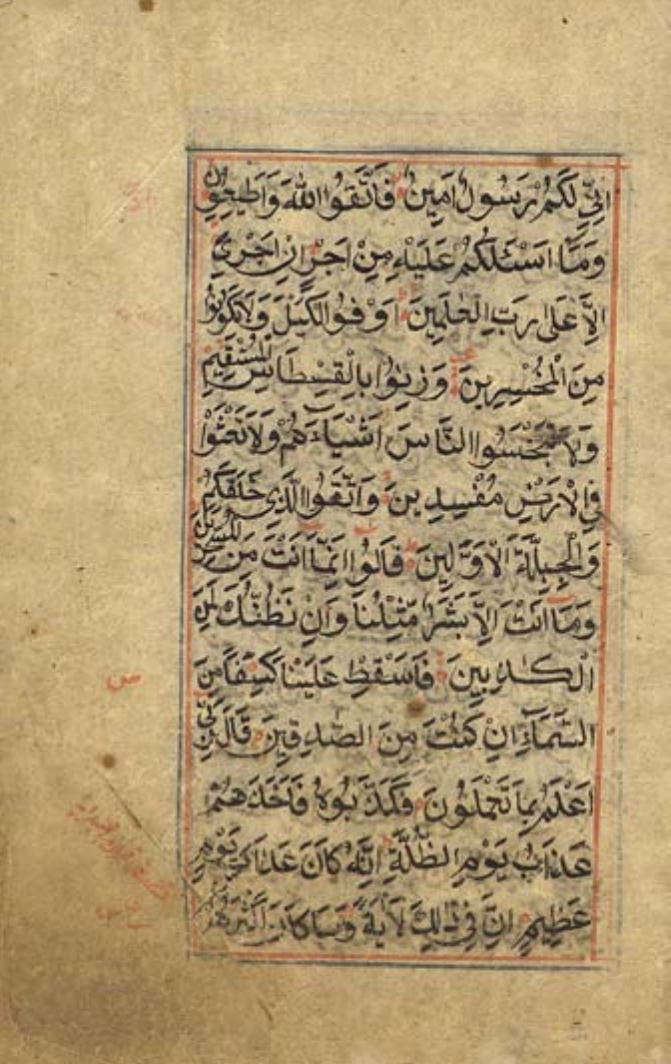 اِنِّي لَكُمْ رَسُولٌ اَمِينٌ فَاتَّقُوا اللّٰهَ وَاَطِيعُونِ
وَمَا اَسْـَٔلُكُمْ عَلَيْهِ مِنْ اَجْرٍ اِنْ اَجْرِيَ
اِلَّا عَلٰى رَبِّ الْعٰلَمِينَ اَوْفُوا الْكَيْلَ وَلَا تَكُونُوا
مِنَ الْمُخْسِرِينَ وَزِنُوا بِالْقِسْطَاسِ الْمُسْتَقِيمِ
وَلَا تَبْخَسُوا النَّاسَ اَشْيَآءَهُمْ وَلَا تَعْثَوْا
فِي الْاَرْضِ مُفْسِدِينَ وَاتَّقُوا الَّذِي خَلَقَكُمْ
وَالْجِبِلَّةَ الْاَوَّلِينَ قَالُوا اِنَّمَا اَنْتَ مِنَ الْمُسَحَّرِينَ
وَمَا اَنْتَ اِلَّا بَشَرٌ مِّثْلُنَا وَاِنْ نَظُنُّكَ لَمِنَ
الْكٰذِبِينَ فَاَسْقِطْ عَلَيْنَا كِسَفًا مِنَ
السَّمَآءِ اِنْ كُنْتَ مِنَ الصّٰدِقِينَ قَالَ رَبِّي
اَعْلَمُ بِمَا تَعْمَلُونَ فَكَذَّبُوهُ فَاَخَذَهُمْ
عَذَابُ يَوْمِ الظُّلَّةِ اِنَّهُ كَانَ عَذَابَ يَوْمٍ
عَظِيمٍ اِنَّ فِي ذٰلِكَ لَاٰيَةً وَمَا كَانَ اَكْثَرُهُمْ